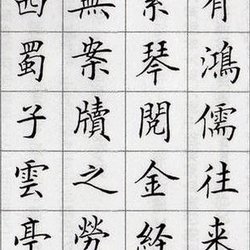 有鴻儒往来
素琴閱金経
無案牘之勞
西蜀子雲亭